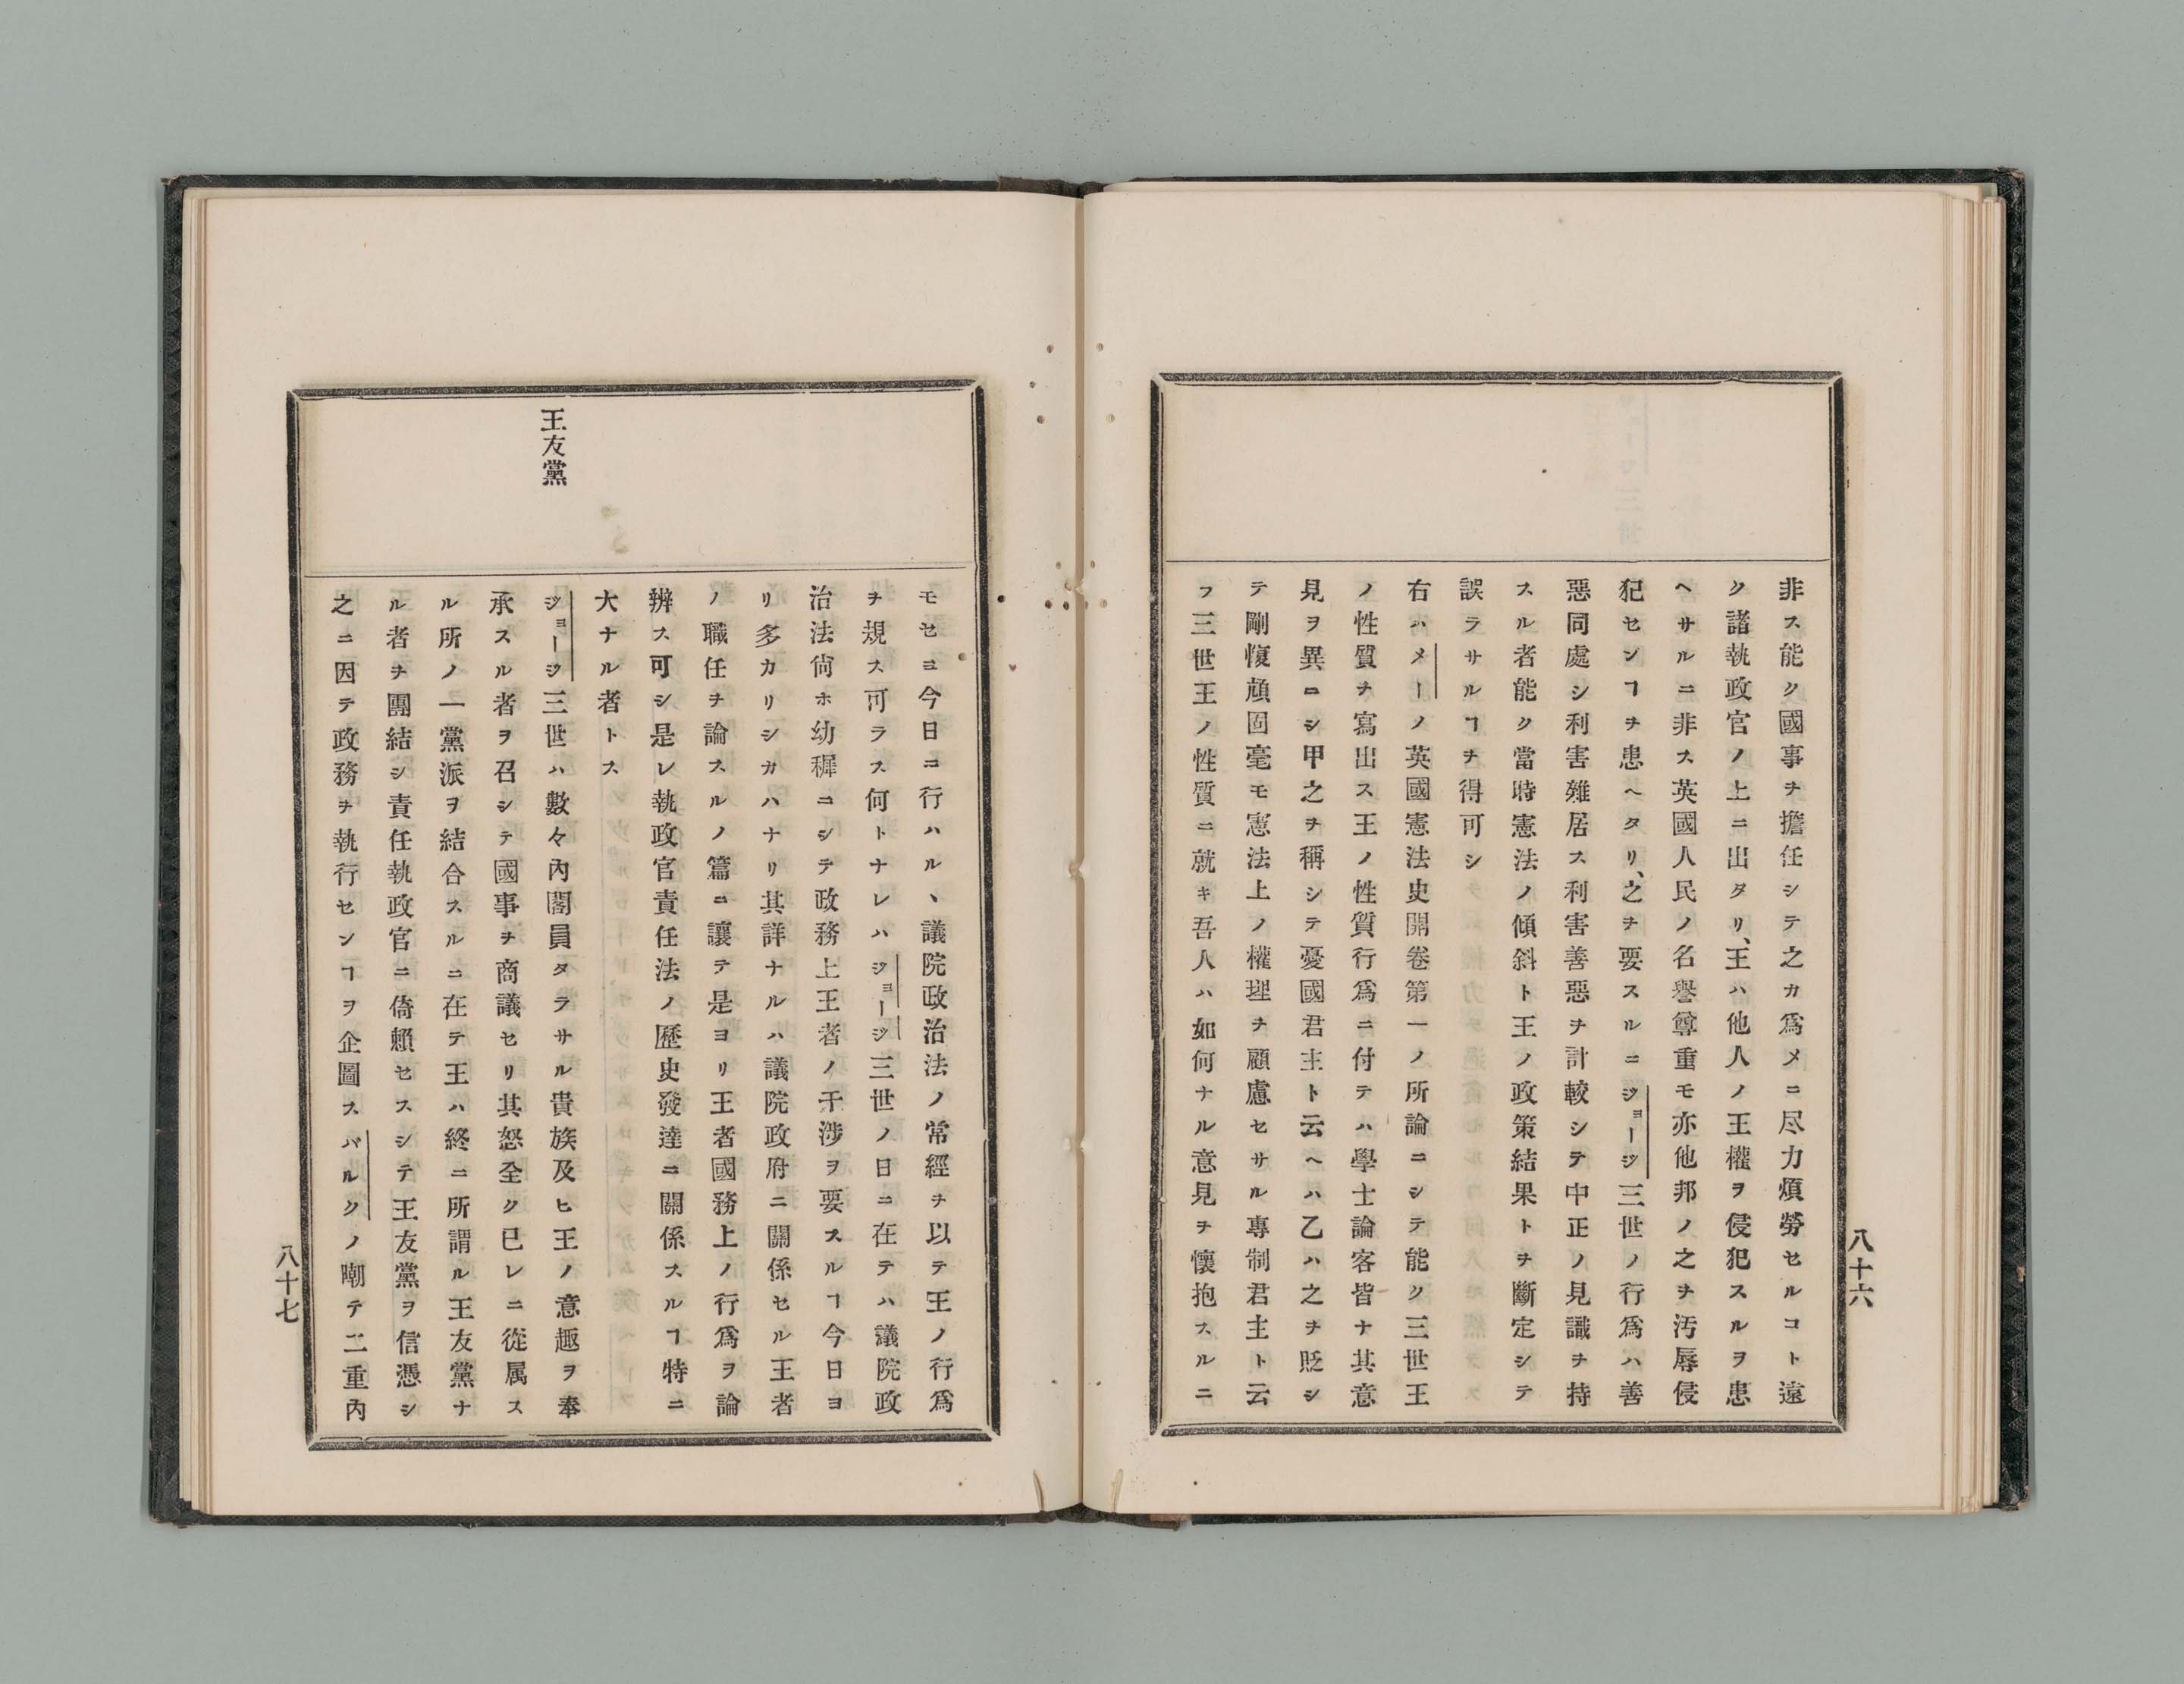 非ス能ク國事ヲ擔任シテ之カ爲メニ尽力煩勞セルコト遠
ク諸執政官ノ上ニ出タリ、王ハ他人ノ王權ヲ侵犯スルヲ患
ヘサルニ非ス英國人民ノ名譽尊重モ亦他邦ノ之ヲ汚辱侵
犯センヿヲ患ヘタリ、之ヲ要スルニジョージ三世ノ行爲ハ善
惡同處シ利害雜居ス利害善惡ヲ計較シテ中正ノ見識ヲ持
スル者能ク當時憲法ノ傾斜ト王ノ政策結果トヲ斷定シテ
誤ラサルヿヲ得可シ
右ハメーノ英國憲法史開卷第一ノ所論ニシテ能ク三世王
ノ性質ヲ寫出ス王ノ性質行爲ニ付テハ學士論客皆ナ其意
見ヲ異ニシ甲之ヲ稱シテ憂國君主ト云ヘハ乙ハ之ヲ貶シ
テ剛愎頑固毫モ憲法上ノ權理ヲ顧慮セサル專制君主ト云
フ三世王ノ性質ニ就キ吾人ハ如何ナル意見ヲ懷抱スルニ
八十六
王友黨
モセヨ今日ニ行ハルヽ議院政治法ノ常經ヲ以テ王ノ行爲
ヲ規ス可ラス何トナレハジョージ三世ノ日ニ在テハ議院政
治法尙ホ幼穉ニシテ政務上王者ノ干涉ヲ要スルヿ今日ヨ
リ多カリシカハナリ其詳ナルハ議院政府ニ關係セル王者
ノ職任ヲ論スルノ篇ニ讓テ是ヨリ王者國務上ノ行爲ヲ論
辨ス可シ是レ執政官責任法ノ歷史發達ニ關係スルヿ特ニ
大ナル者トス
ジョージ三世ハ數々內閣員タラサル貴族及ヒ王ノ意趣ヲ奉
承スル者ヲ召シテ國事ヲ商議セリ其怒全ク已レニ從属ス
ル所ノ一黨派ヲ結合スルニ在テ王ハ終ニ所謂ル王友黨ナ
ル者ヲ團結シ責任執政官ニ倚賴セスシテ王友黨ヲ信憑シ
之ニ因テ政務ヲ執行センヿヲ企圖スバルクノ嘲テ二重內
八十七